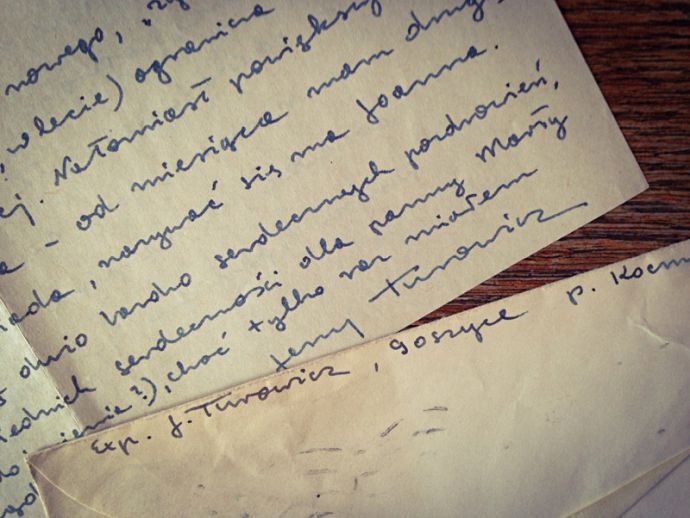 nowego,
w lecie) ogranicza
ej. Natomiast powiększy
a - od miesiąca mam drug
iada, nazywać się ma Joanna.
dużo bardzo serdecznych pozdrowień,
serdeczności dla panny Marty
), choć tylko raz miałem
Jerzy Turowicz
Exp. J. Turowicz, Goszyce p. Kocm